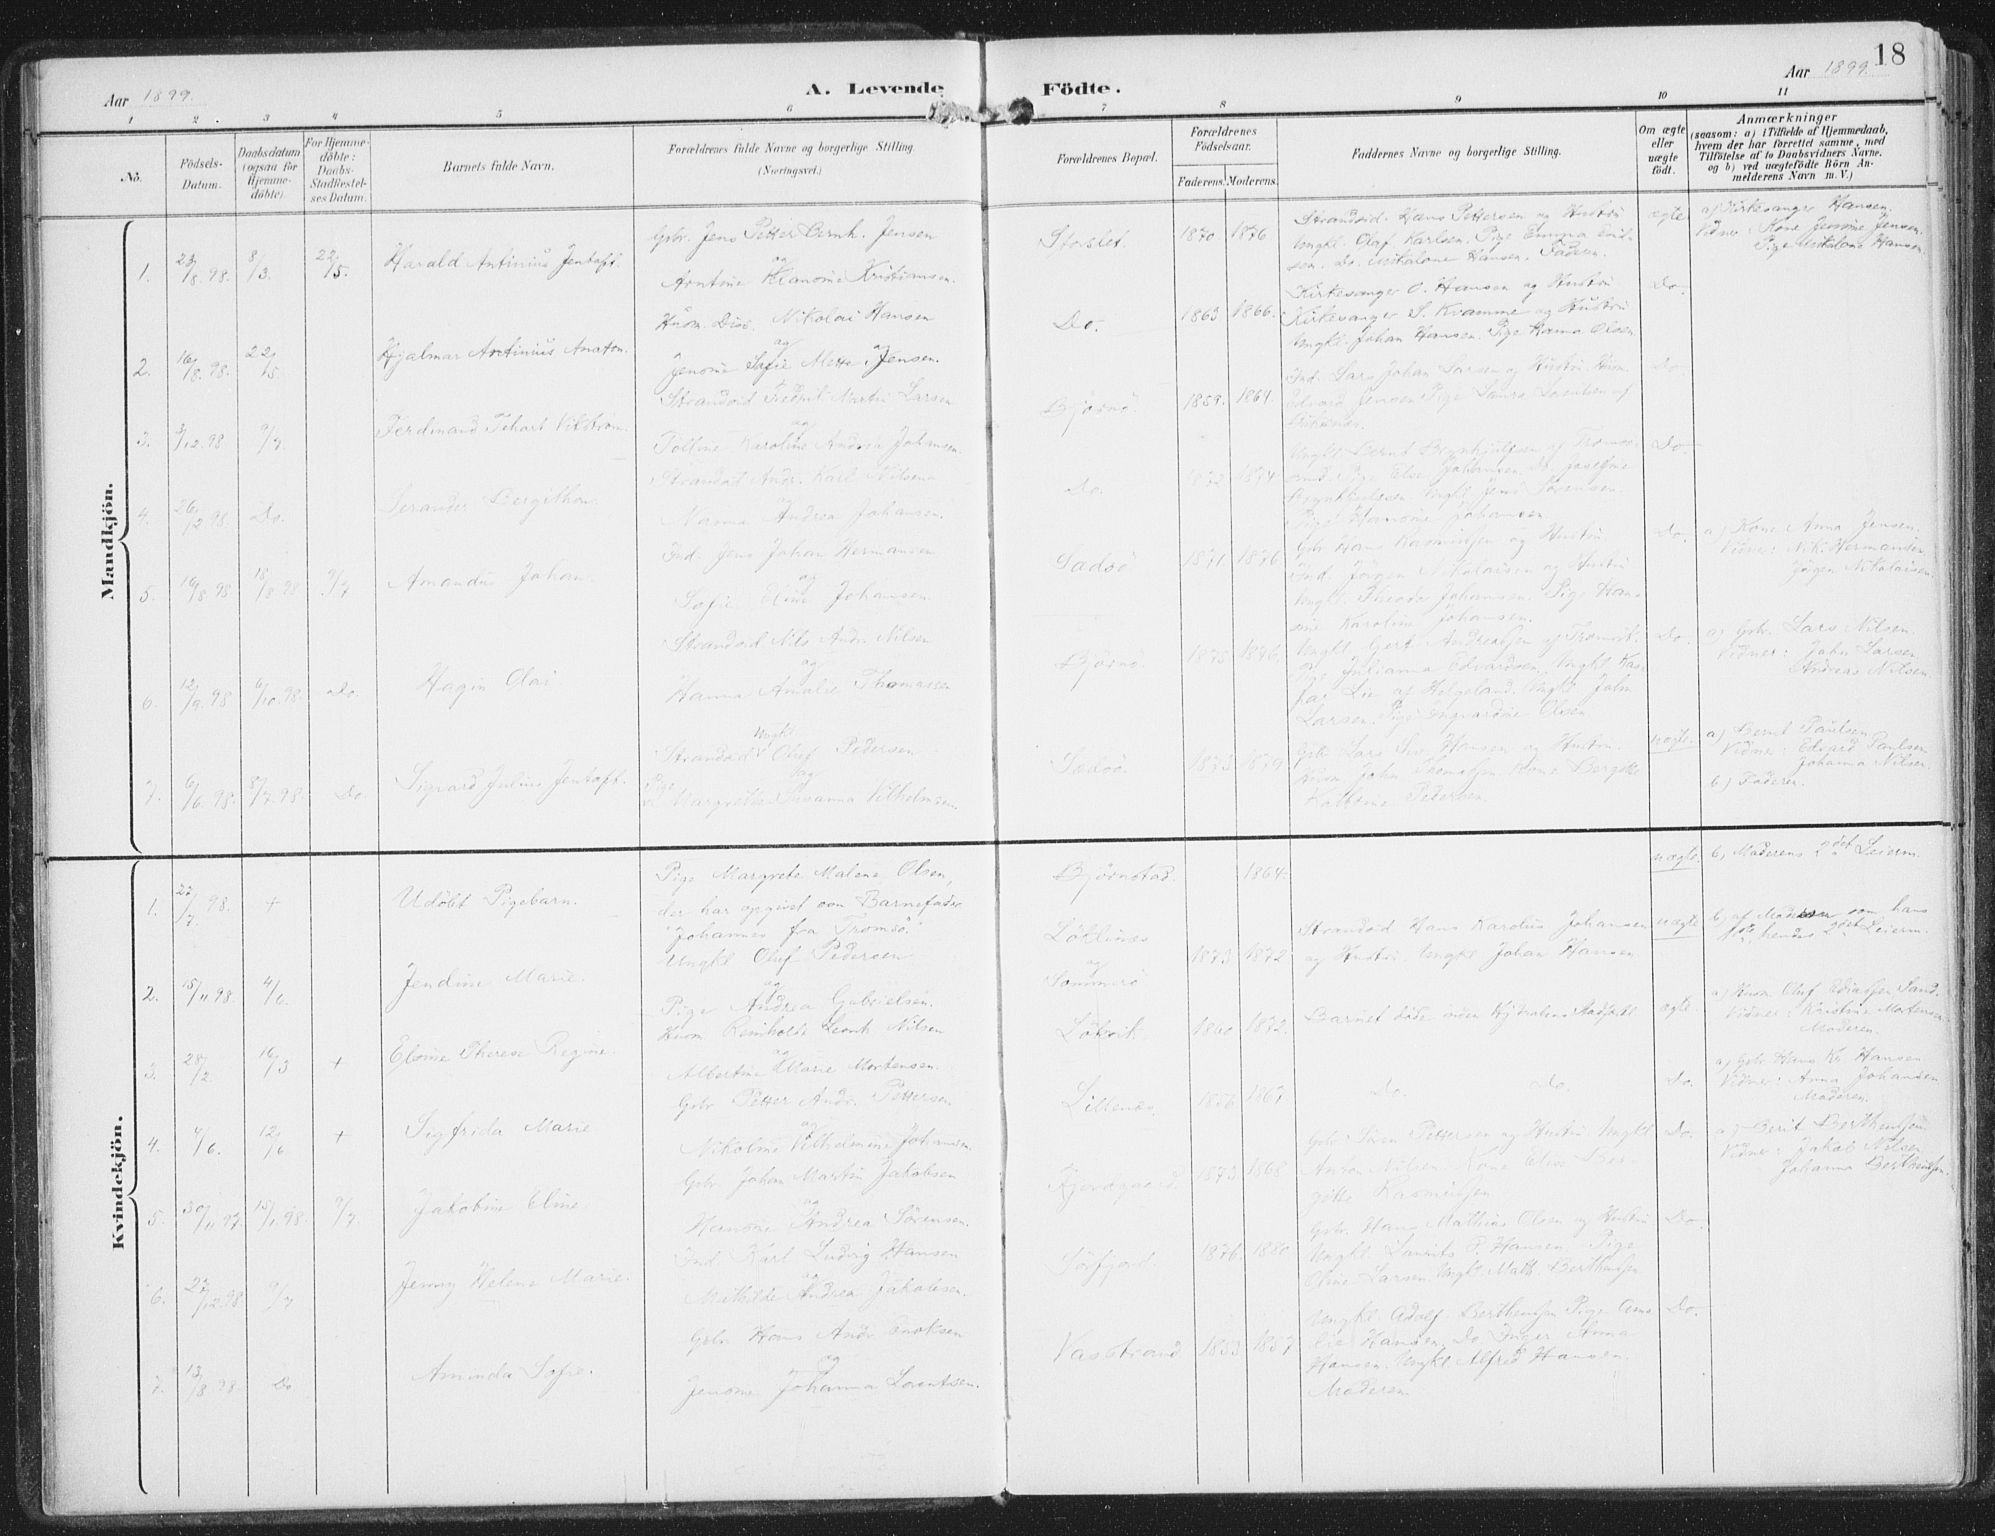 18
Aar 1899.
A. Levende Födte.
Aar 1899.
1 2 3 4 5 6 7 8 9 10 11
No.
Födsels-Datum.
Daabsdatum (ogsaa for Hjemme-döbte).
For Hjemme-döbte: Daabs-Stadfæstel-ses Datum.
Barnets fulde Navn.
Forældrenes fulde Navne og borgerlige Stilling.
(Næringsvei.)
Forældrenes Bopæl.
Forældrenes Födselsaar.
Faderens. Moderens.
Faddernes Navne og borgerlige Stilling.
Om ægte eller uægte födt.
Anmærkninger
(saasom: a) i Tilfælde af Hjemmedaab,
hvem der har forrettet samme, med
Tilföielse af to Daabsvidners Navne.
og b) ved uægtefödte Börn An-
melderens Navn m. V.)
Mandkjön.
1. 23/8.98. 8/3. 22/5. Harald Antinius Jentoft.
Gbr. Jens Petter Bernh. Jensen
og
Arntine Klanome Kristiansen.
Storslet. 1870. 1876
Strandsid. Hans Pettersen og Hustru
Ungkl. Olaf Karlsen. Pige Emma
sen. Do. Mikalone Hansen. Faderen.
ægte
a) Kirkesanger Hansen.
Vidner: Kone Jenome Jensen.
Pige Mikalone Hansen.
2. 16/8.98. 22/5. Hjalmar Antinius Anaton.
Husm. Disc. Nikolai Hansen
og
Jenome Sofie Mette Jensen.
Do. 1863 1866.
Kirkesanger O. Hansen og Hustru
Kirkesanger S. Kvamme og Hustru
Ungkl. Johan Hansen. Pige Olsen
Do.
3. 3/12.98 9/7. Ferdinand Vikstrøm.
Strandsid Fredrik Martin Larsen
og
Karoline Andrea Johansen.
Bjørnø. 1859. 1864.
Ind. Lars Johan Larsen og Hustru. Husm.
Edvard Jensen Pige Laura af
Do.
4. 26/12 98. Do. Bergithon.
Strandsid Andr. Karl Nilsen
og
Nanna Andrea Johansen.
Do. 1872 1874.
Ungkl. Bernt Brynhjulfsen af Tromsø-
sund. Pige Else Johansen. Do. Josefine
Ungkl. Jens Sørensen.
Pige Hanome Johansen
Do.
5. 16/8.98 18/8 98 9/7 Amandus Johan.
Ind. Jens Johan Hermansen
og
Sofie Johansen.
1871. 1876
Gbr. Hans Rasmussen og Hustru
Ind. Jörgen Nikolaisen og Hustru
Ungkl. Theodor Johansen. Pige Hano-
me Karoline Johansen.
Do.
a) Kone Anna Jensen.
Vidner: Nik. Hermansen
Jörgen Nikolaisen.
6. 12/9.98 6/10.98. Do. Hagin Olai.
Strandsid Nils Andr. Nilsen
og
Hanna Amalie Thomassen
Bjørnø. 1875 1876.
Ungkl. Gert Andreassen af Tromvik.
Pige Julianna Edvardsen. Ungkl. Kas-
par Lie af Helgeland. Ungkl. John
Larsen. Pige Ingvardine Olsen
Do.
a) Gbr. Lars Nilsen.
Vidner: John Larsen
Andreas Nilsen.
7. 6/6.98. 8/7.98. Do. Sigvard Julius Jentoft.
Strandsid Ungkl Oluf Pedersen
og
Pige Margrethe Susanna Vilhelmsen.
1873 1879.
Gbr. Lars Hansen og Hustru.
Husm. John Thomassen. Kone Bergitte
Kathrine Pedersen.
uægte.
a) Bernt Paulsen.
Vidner: Edvard Paulsen
Johanna Nilsen.
b) Faderen.
Kvindekjön.
1. 22/7. 98. + Udöbt Pigebarn.
Pige Margrete Malene Olsen,
der har opgivet som Barnefader
"Johannes fra Tromsö."
Bjørnstad. 1864.
uægte.
b) Moderens 2det Leierm.
2. 15/11 98. 4/6. Jendine Marie.
Ungkl Oluf Pedersen
og
Pige Andrea Gabrielsen.
og
Sommerø
1873 1872
Strandsid Hans Karolus Johansen
og Hustru. Ungkl Johan Hansen.
uægte
b) af Moderen som hans
hendes 2det Leierm.
3. 28/2. 16/3 + Therese Regine.
Husm Reinholdt Leonh Nilsen
og
Albertine Marie Mortensen.
Løkvik 1860 1872.
Barnet døde inden Hjdaabens Stadfæstl.
ægte.
a) Husm Oluf
Vidner: Kristine Mortensen
Moderen.
4. 4/6. 12/6 + Sigfrida Marie
Gbr Petter Andr. Pettersen
og
Nikoline Vilhelmine Johansen.
Lillenæs. 1856 1867
Do. Do.
Do.
a) Gbr. Hans Kr Hansen
Vidner: Anna Johansen
Moderen.
5. 30/11 97. 15/1.98. 9/7. Jakobine Eline
Gbr. Johan Martin Jakobsen
og
Hanome Andrea Sørensen.
Fjordgaard. 1873 1868
Gbr Søren Pettersen og Hustru Ungkl
Anton Nilsen. Kone Elise Ber-
gitte Rasmussen
Do.
a) Berit Berthensen
Vidner: Jakob Nilsen
Johanna Berthensen.
6. 27/12.98. 9/7 Jenny Helene Marie.
Ind. Karl Ludvig Hansen
og
Mathilde Andrea Jakobsen.
Sørfjord 1876. 1880
Gbr. Hans Mathias Olsen og Hustru
Ungkl. Laurits P. Hansen. Pige
Oline Larsen. Ungkl Math. Berthensen
Do.
7. 13/8 98. Do Aminda Sofie.
Gbr. Hans Andr. Enoksen
og
Jenome Johanna Lorentsen.
Vasstrand 1853 1857
Ungkl. Adolf Berthensen Pige Ama-
lie Hansen. Do. Inger Anna
Hansen. Ungkl Alfred Hansen.
Moderen
Do.